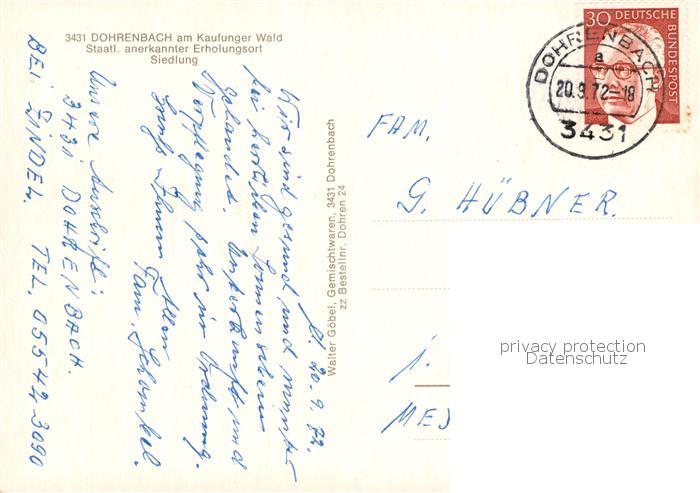 3431 DOHRENBACH am Kaufunger Wald
Staatl. anerkannter Erholungsort
Siedlung
D. 20.9.72.
Wir sind gesund und munter
bei herrlichem Sonnenschein
gelandet. Unterkunft und
Verpflegung sehr in Ordnung.
Grüße Ihnen Allen
Fam. Schenkel.
Unsere Anschrift:
3431 DOHRENBACH.
BEI ZINDEL. TEL. 05542 3090
Walter Göbel, Gemischtwaren, 3431 Dohrenbach
zz Bestellnr. Dohren 24
30 DEUTSCHE BUNDESPOST
DOHRENBACH
a
20.9.72-18
3431
FAM.
G. HÜBNER.
i.
privacy protection
Datenschutz